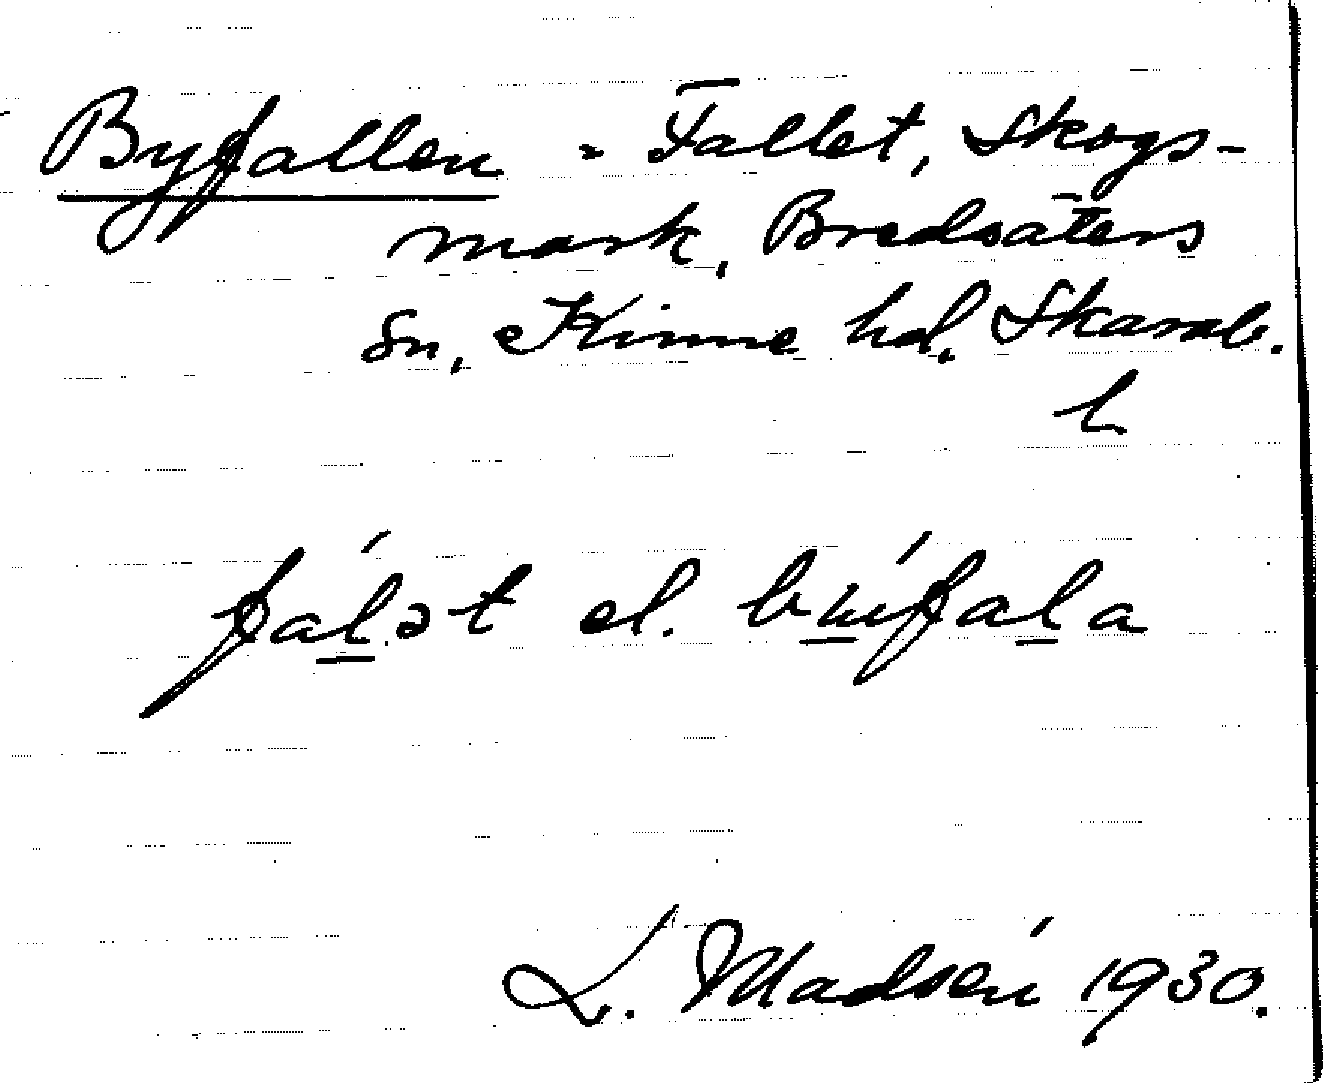 Byfallen = Fallet, Skogs-
mark, Bredsäters
sn, Kinne hd, Skarab.
l
fál̲ət el. búfal̲a
L. Madsén 1930.